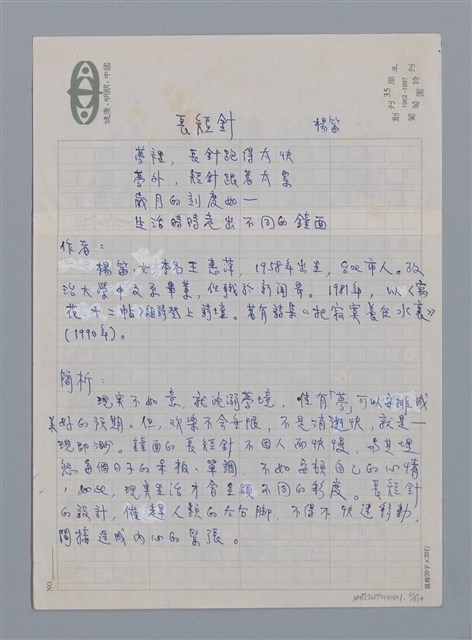 健康·明朗·中國
創刊35周年
1962-1997
葡萄園詩刊
長短針 楊笛
夢裡，長針跑得太快
夢外，短針跟著太累
歲月的刻度如一
生活時時走出不同的鐘面
作者：
楊笛，女，本名王惠萍，1958年出生，台北市人。政
治大學中文系畢業，任職於新聞界。1981年，以〈窗
花十二帖〉組詩登上詩壇。著有詩集《把寂寞養在水裏》
(1990年)。
簡析：
現實不如意，就沈溺夢境，唯有「夢」可以安排成
美好的預期。但，歡樂不會無限，不是消逝快，就是一
現即渺。鐘面的長短針不因人而快慢，與其埋
怨每個日子的呆板、單調，不如安頓自己的心情
，如此，現實生活才會呈顯不同的彩度。長短針
的設計，催趕人類的左右腳，不得不快速移動，
間接造成內心的緊張。
NO.
規格20字×20行